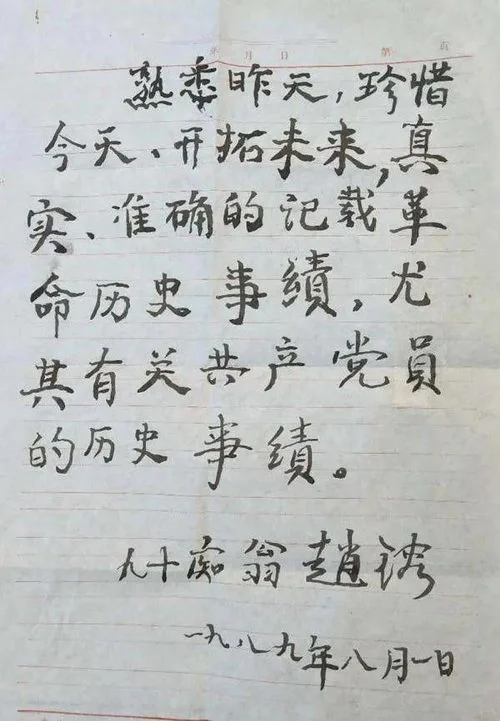 年 月 日 第 页
熟悉昨天,珍惜
今天、开拓未来,真
实、准确的记载革
命历史事績,尤
其有关共产党员
的历史事績。
九十痴翁趙镕
一九八九年八月一日